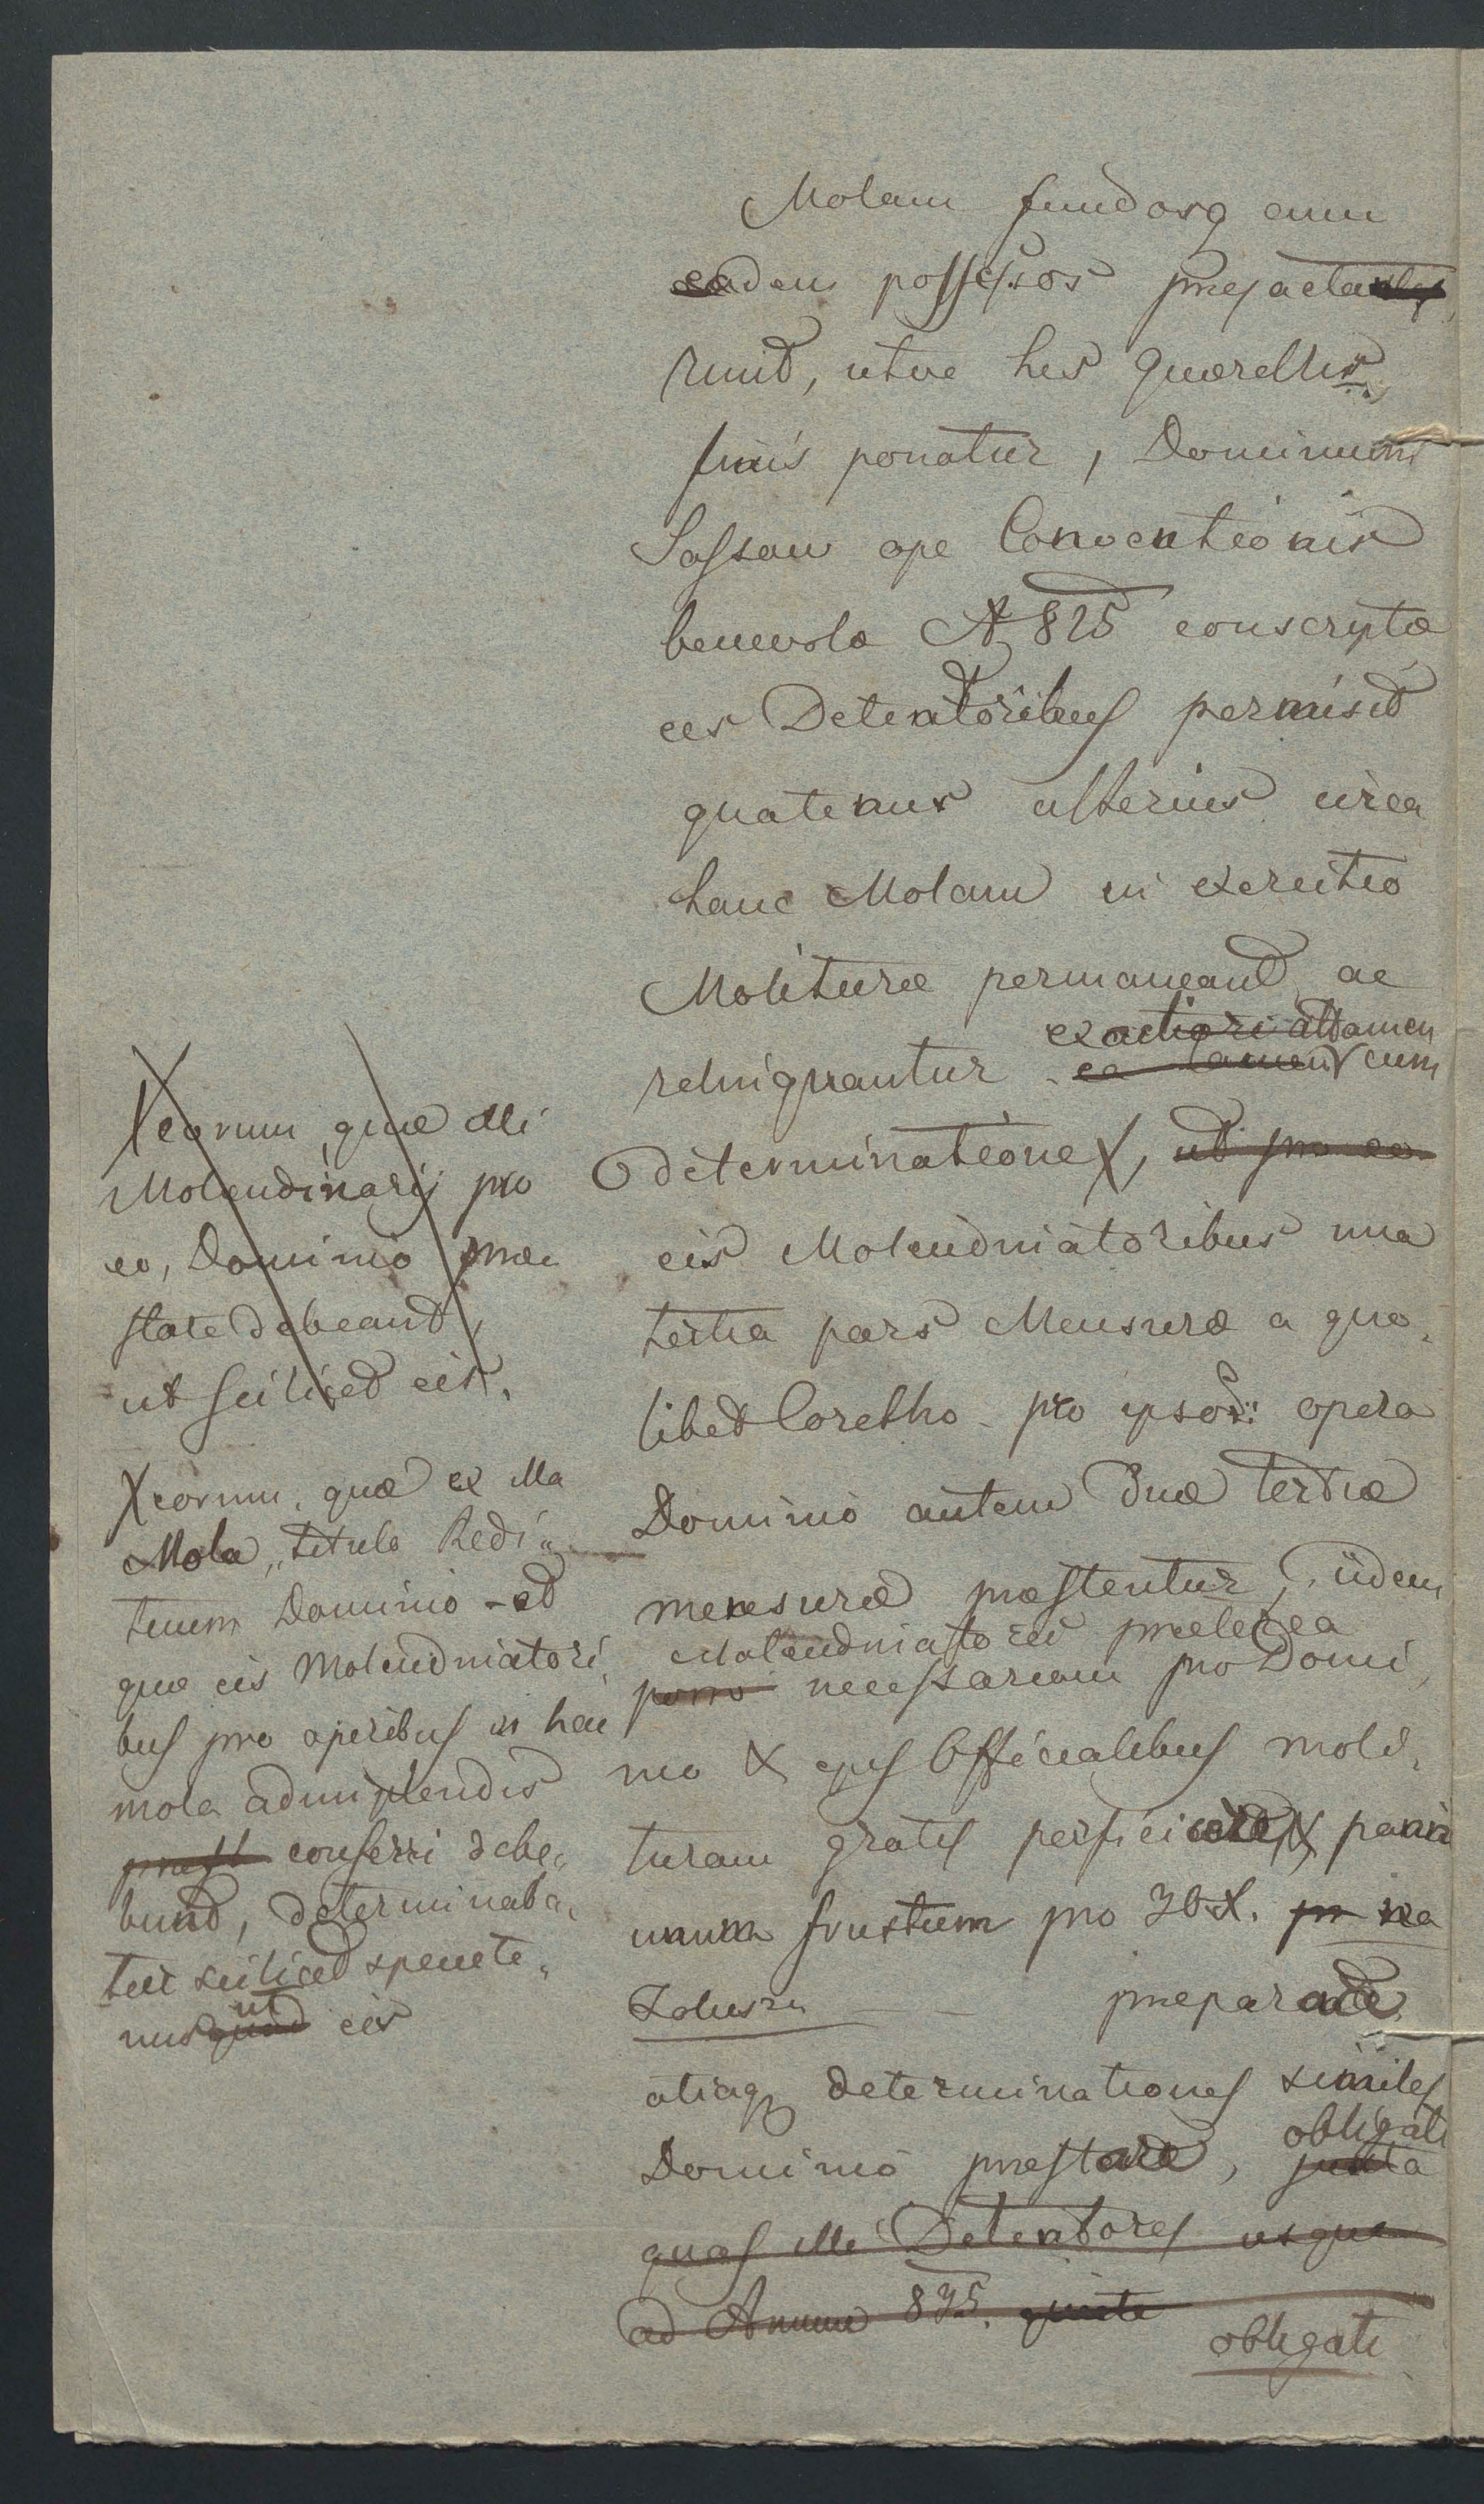 Molam fundosq cum
eadem possessos prejacta
runt, utve his Querellis
finis ponatur, Dominum
Sassau ope Conventionis
benevolæ A 825 conscriptæ
eis Detentoribus permisit
quatenus ulterius circa
hanc Molam in exercitio
Molituræ permaneant ac
exactiori attamen
relinquantur ea tamen cum
determinatione X, ut pro eo
eis Molendinatoribus una
tertia pars Mensuræ a quo„
libet Coretho pro ipsor: opera
Dominio autem Duæ tertiæ
mensuræ præstentur, iidem
Molendinatores præterea
porro necessariam pro Domi„
nio & ejus Officialibus moli„
turam gratis perficere & panni
unum frustum pro 30 X. pr na
Zaluzu præparare
aliasq determinationes similes
obligati
Dominio præstare, juxta
quas illi Detentores usque
ad Annum 835.
obligati
X eorum, quæ illi
Molendinarij pro
eo, Dominio præ
state debeant,
ut scilicet eis,
X eorum, quæ ex illa
Mola, titulo Redi„
tuum Dominio - et
quæ eis Molendinatori„
bus pro operibus in hac
mola adimplendis
præst conferri debe„
bunt, determinaba„
tur scilicet
ut
nus quod eis